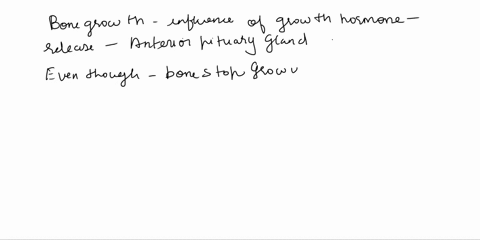 Bone growth - influence of growth hormone -
release - Anterior pituary gland
Even though - bone stop grow